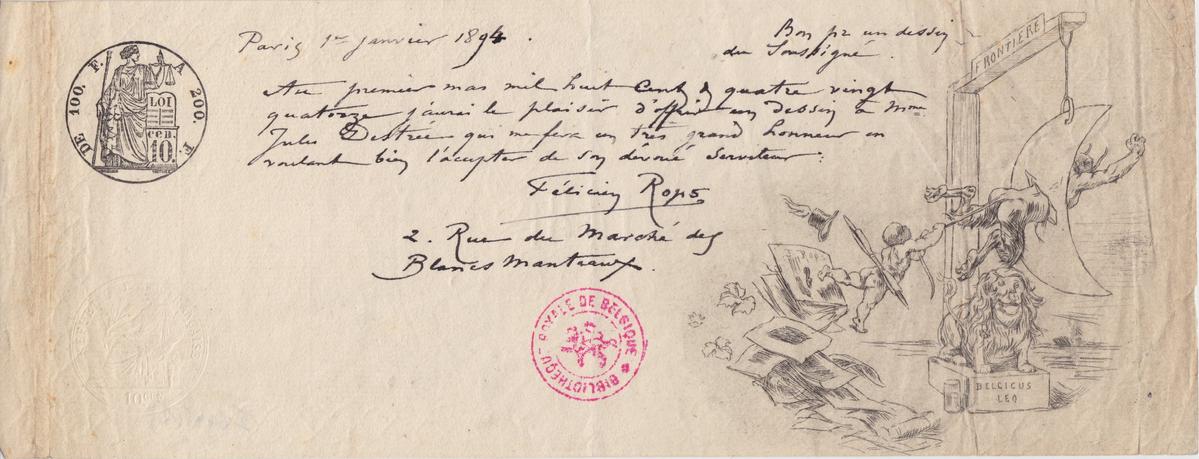 Paris 1er janvier 1894.
Bon pr un dessin
du Soussigné.
Au premier mas mil huit Cent & quatre vingt
quatorze j'aurai le plaisir d'offrir un dessin à Mme
Jules Destrée qui me fera un très grand honneur en
voulant bien l'accepter de son dévoué Serviteur:
Félicien Rops
2. Rue du Marché des
Blancs Manteaux.
DE 100. F. A 200. F.
LOI
cen.
10.
BIBLIOTHEQU. ROYALE DE BELGIQUE
FRONTIÈRE
BELGICUS
LEO